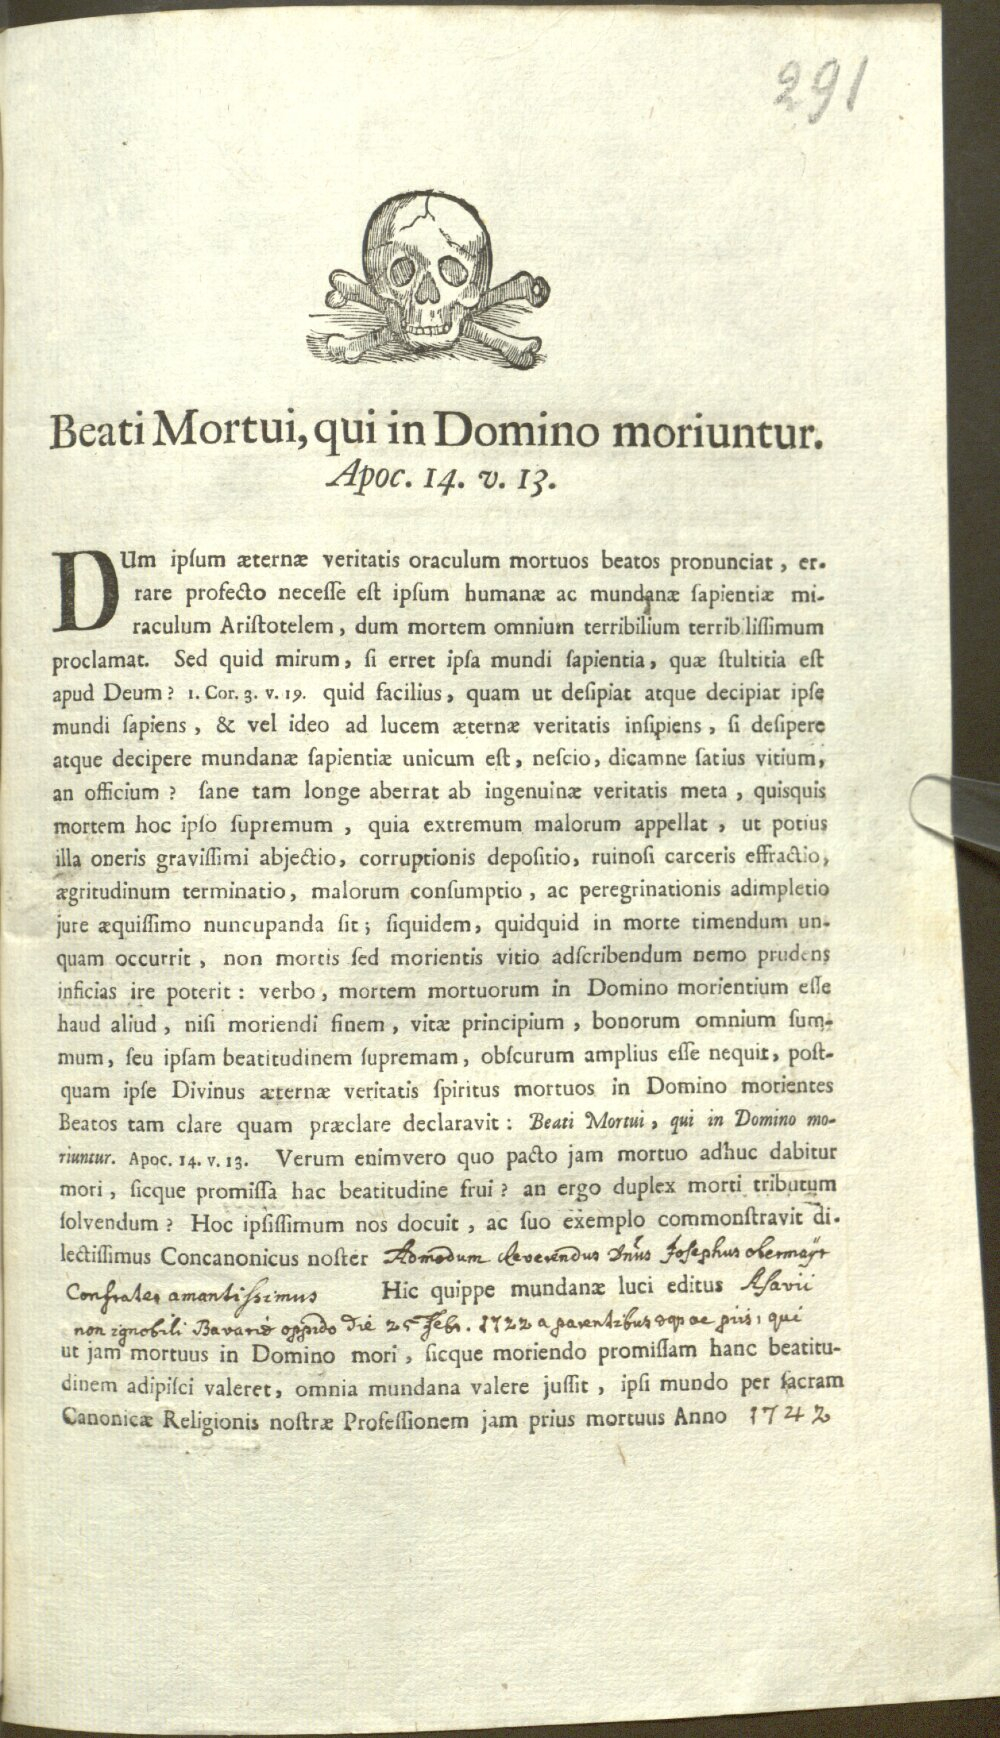 291
Beati Mortui, qui in Domino moriuntur.
Apoc. 14. v. 13.
DUm ipſum æternæ veritatis oraculum mortuos beatos pronunciat, er-
rare profecto neceſſe est ipſum humanæ ac mundanæ ſapientiæ mi-
raculum Ariſtotelem, dum mortem omnium terribilium terribiliſſimum
proclamat. Sed quid mirum, ſi erret ipſa mundi ſapientia, quæ ſtultitia eſt
apud Deum? 1. Cor. 3. v. 19. quid facilius, quam ut deſipiat atque decipiat ipſe
mundi ſapiens, & vel ideo ad lucem æternæ veritatis inſipiens, ſi deſipere
atque decipere mundanæ ſapientiæ unicum eſt, neſcio, dicamne ſatius vitium,
an officium? ſane tam longe aberrat ab ingenuinæ veritatis meta, quisquis
mortem hoc ipſo ſupremum, quia extremum malorum appellat, ut potius
illa oneris graviſſimi abjectio, corruptionis depoſitio, ruinoſi carceris effractio,
ægritudinum terminatio, malorum conſumptio, ac peregrinationis adimpletio
jure æquiſſimo nuncupanda ſit; ſiquidem, quidquid in morte timendum un-
quam occurrit, non mortis ſed morientis vitio adſcribendum nemo prudens
inficias ire poterit: verbo, mortem mortuorum in Domino morientium eſſe
haud aliud, niſi moriendi finem, vitæ principium, bonorum omnium ſum-
mum, ſeu ipſam beatitudinem ſupremam, obſcurum amplius eſſe nequit, poſt-
quam ipſe Divinus æternæ veritatis ſpiritus mortuos in Domino morientes
Beatos tam clare quam præclare declaravit: Beati Mortui, qui in Domino mo-
riuntur. Apoc. 14. v. 13. Verum enimvero quo pacto jam mortuo adhuc dabitur
mori, ſicque promiſſa hac beatitudine frui? an ergo duplex morti tributum
ſolvendum? Hoc ipſiſſimum nos docuit, ac ſuo exemplo commonſtravit di-
lectiſſimus Concanonicus noſter Admodum Reverendus Dnus Josephus obermayr
Confrater amantissimus Hic quippe mundanæ luci editus
non ignobili Bavariæ oppido die 25 Febr. 1722 a parentibus æque ac piis, qui
ut jam mortuus in Domino mori, ſicque moriendo promiſſam hanc beatitu-
dinem adipiſci valeret, omnia mundana valere juſſit, ipſi mundo per ſacram
Canonicæ Religionis noſtræ Profeſſionem jam prius mortuus Anno 1742